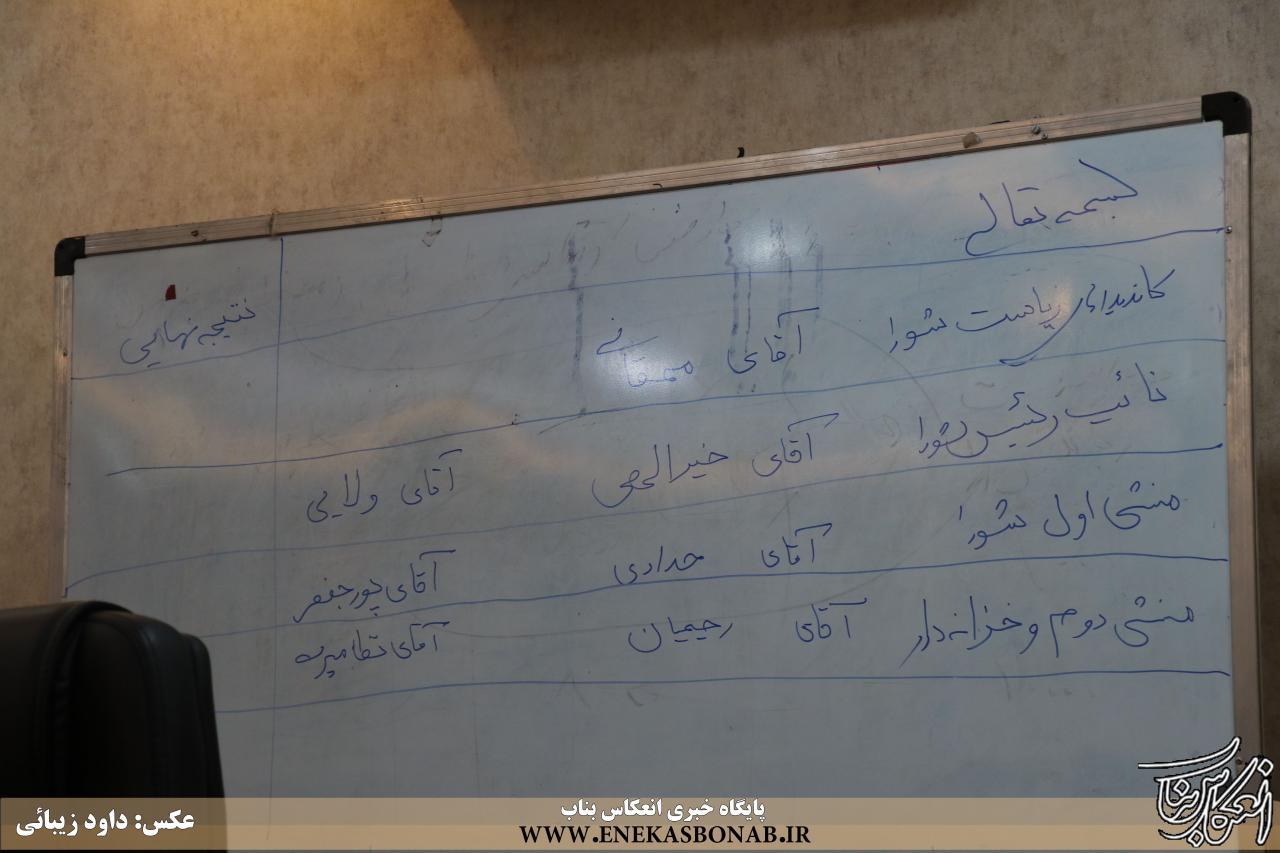 بسمه تعالی
کاندیداهای ریاست شورا آقای ممقانی نتیجه نهایی
نائب رئیس شورا آقای خیرالهی آقای ولایی
منشی اول شورا آقای حدادی آقای پورجعفر
منشی دوم و خزانه دار آقای رحیمیان آقای
پایگاه خبری انعکاس بناب
عکس: داود زیبائی
WWW.ENEKASBONAB.IR
انعکاس بناب